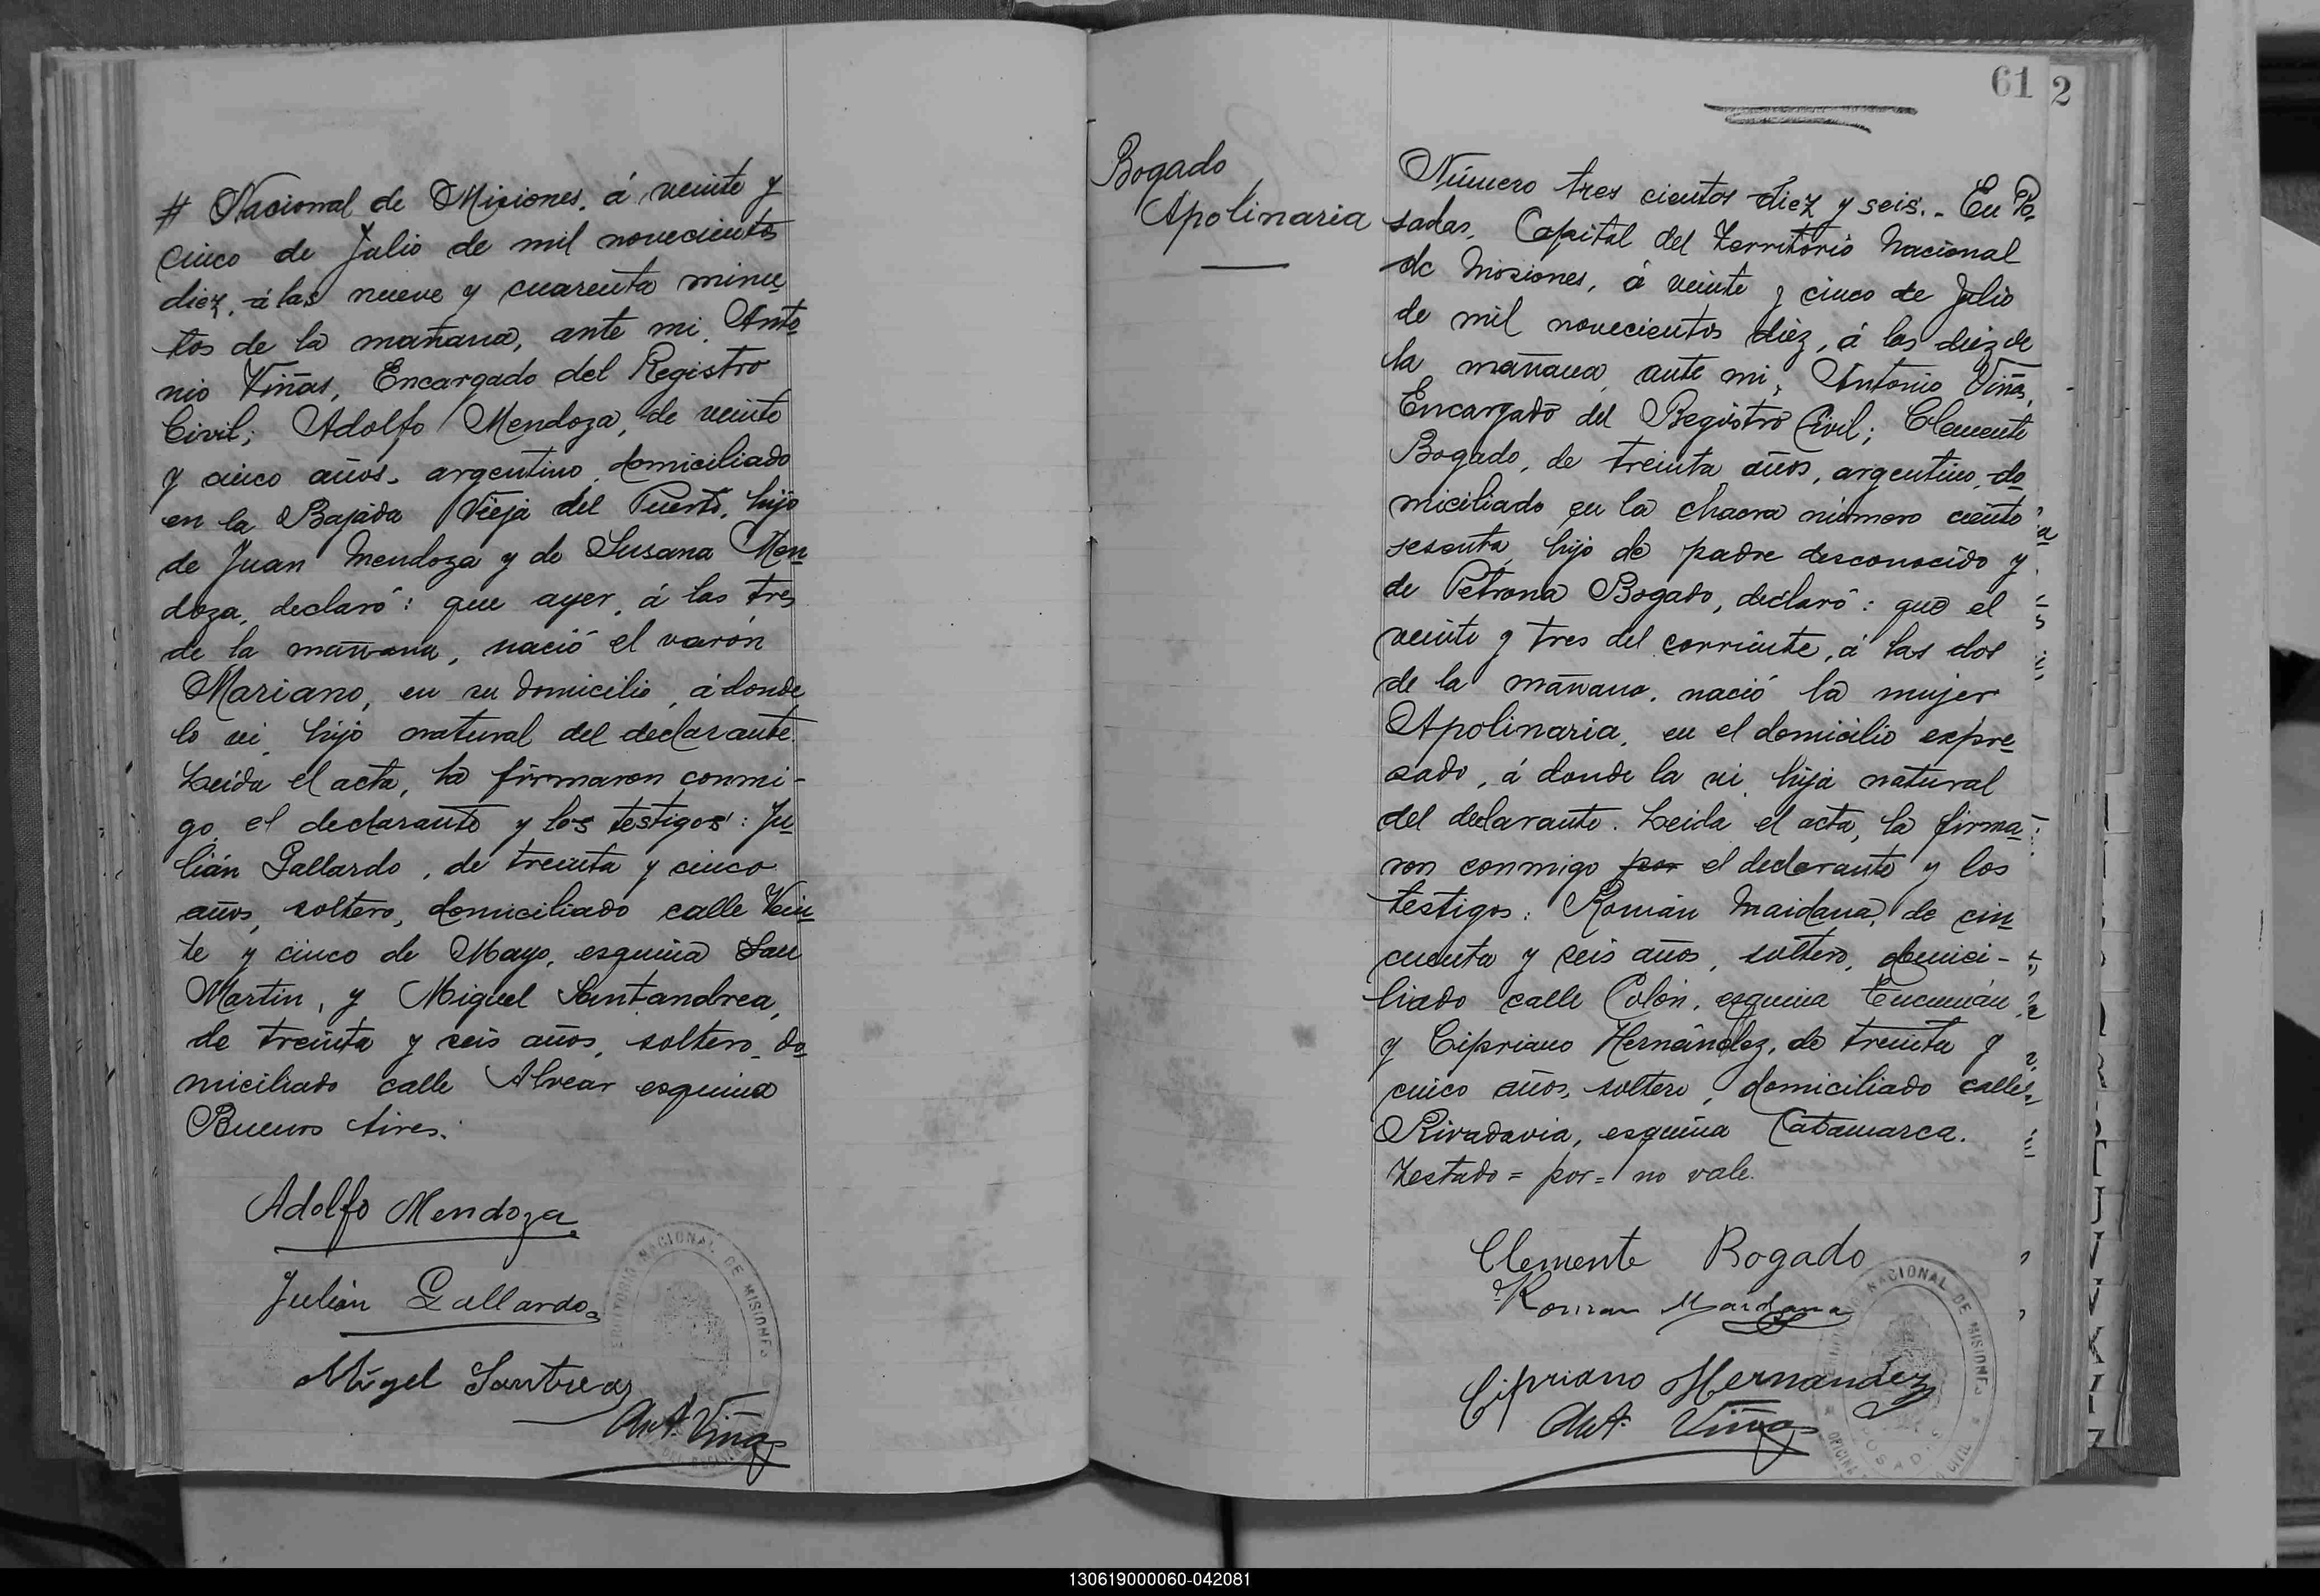 # Nacional de Misiones, á veinte y
cinco de Julio de mil novecientos
diez, á las nueve y cuarenta minu
tos de la mañana, ante mi, Anto
nio Viñas, Encargado del Registro
Civil; Adolfo Mendoza, de veinte
y cinco años, argentino, domiciliado
en la Bajada Vieja del Puerto, hijo
de Juan Mendoza y de Susana Men
doza, declaró: que ayer, á las tres
de la mañana, nació el varón
Mariano, en su domicilio, á donde
lo vi, hijo natural del declarante.
Leida el acta, la firmaron conmi-
go, el declarante y los testigos: Ju
lián Gallardo, de treinta y cinco
años, soltero, domiciliado calle Vein
te y cinco de Mayo, esquina San
Martin, y Miguel Santandrea,
de treinta y seis años, soltero, do
miciliado calle Alvear esquina
Buenos Aires.
Adolfo Mendoza
Julián Gallardo
Ant. Viñas
61 2
Bogado
Apolinaria
Número tres cientos diez y seis.- En Po
sadas, Capital del Territorio Nacional
de Misiones, á veinte y cinco de Julio
de mil novecientos diez, á las diez de
la mañana, ante mi, Antonio Viñas,
Encargado del Registro Civil; Clemente
Bogado, de treinta años, argentino, do
miciliado en la chacra número ciento
sesenta, hijo de padre desconocido y
de Petrona Bogado, declaró: que el
veinte y tres del corriente, á las dos
de la mañana, nació la mujer
Apolinaria, en el domicilio expre
sado, á donde la vi, hija natural
del declarante. Leida el acta, la firma
ron conmigo por el declarante y los
testigos: Román Maidana, de cin
cuenta y seis años, soltero, domici-
liado calle Colón, esquina Tucumán,
y Cipriano Hernández, de treinta y
cinco años, soltero, domiciliado calle
Rivadavia, esquina Catamarca.
Testado = por = no vale.
Clemente Bogado
Roman Maidana
Cipriano Hernandez
Ant. Viñas
TERRITORIO NACIONAL DE MISIONES
NACIONAL DE MISIONES
POSADAS
130619000060-042081